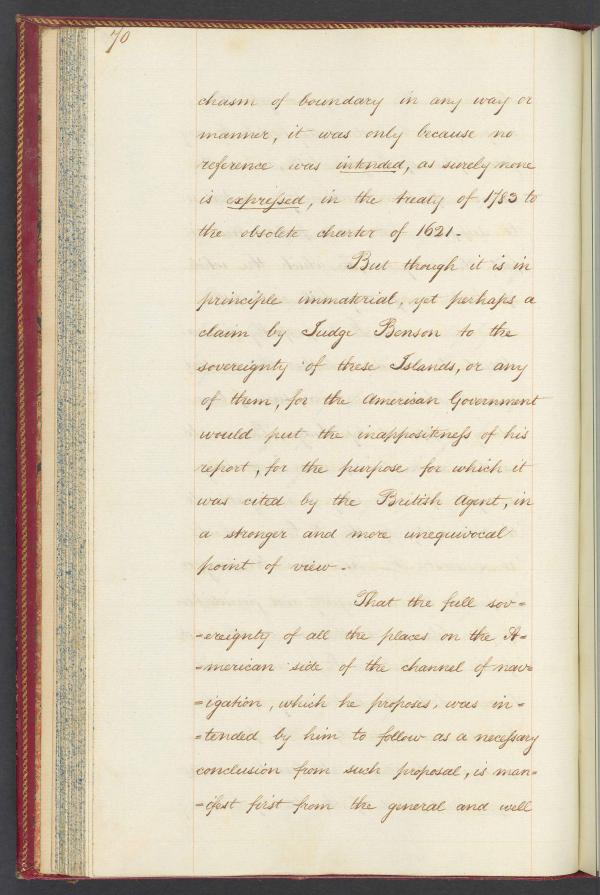 70
chasm of boundary in any way or
manner, it was only because no
reference was intended, as surely none
is expressed, in the treaty of 1783 to
the obsolete charter of 1621.
But though it is in
principle immaterial, yet perhaps a
claim by Judge Benson to the
sovereignty of these Islands, or any
of them, for the American Government
would put the inappositeness of his
report, for the purpose for which it
was cited by the British Agent, in
a stronger and more unequivocal
point of view.
That the full sov=
=ereignty of all the places on the A=
=merican side of the channel of nav=
=igation, which he proposes, was in=
=tended by him to follow as a necessary
conclusion from such proposal, is man=
=ifest first from the general and well